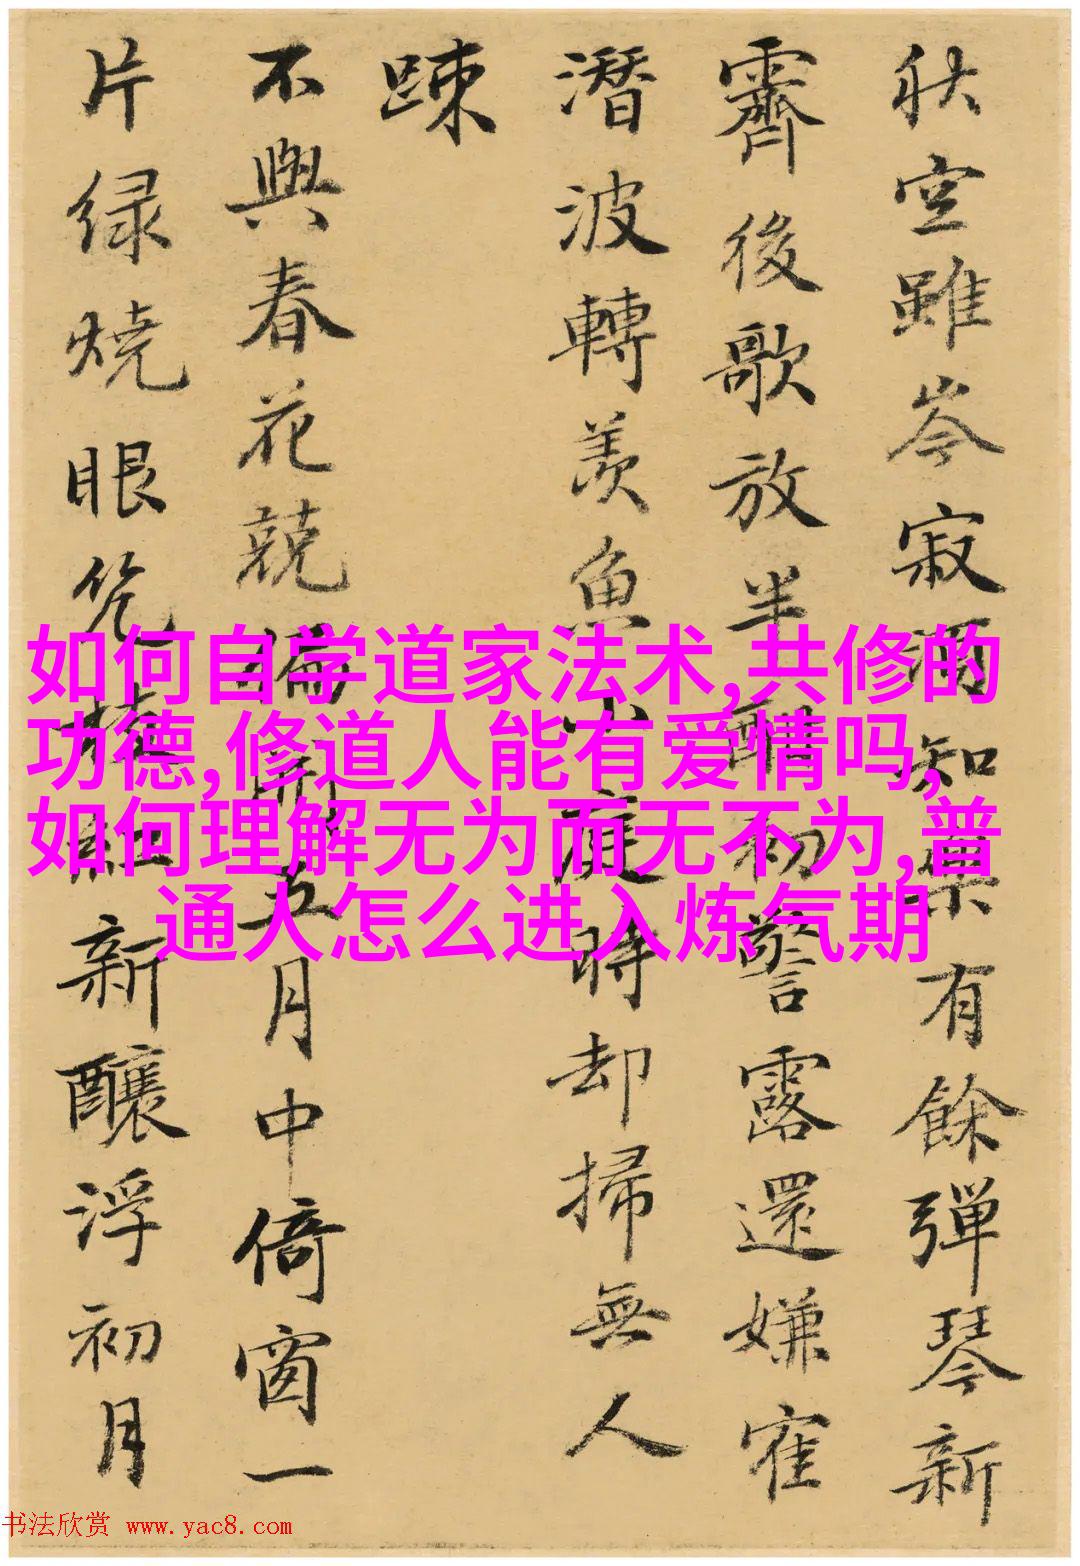 秋空雖岑寂酒知樂有餘彈琴新
霽後歌放半酣初警露還嫌寉
潛波轉羨魚小庭時却掃無人
踈
不與春花競偏開五月中倚窗一
片绿燒眼花枝紅新釀浮初月
如何自学道家法术,共修的
功德,修道人能有爱情吗,
如何理解无为而无不为,普
通人怎么进入炼气期
书法欣赏 www.yac8.com